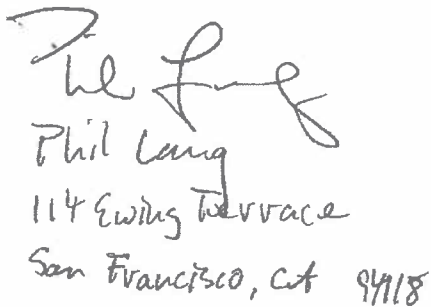 Phil Lang
Phil Lang
114 Ewing Terrace
San Francisco, CA 94118